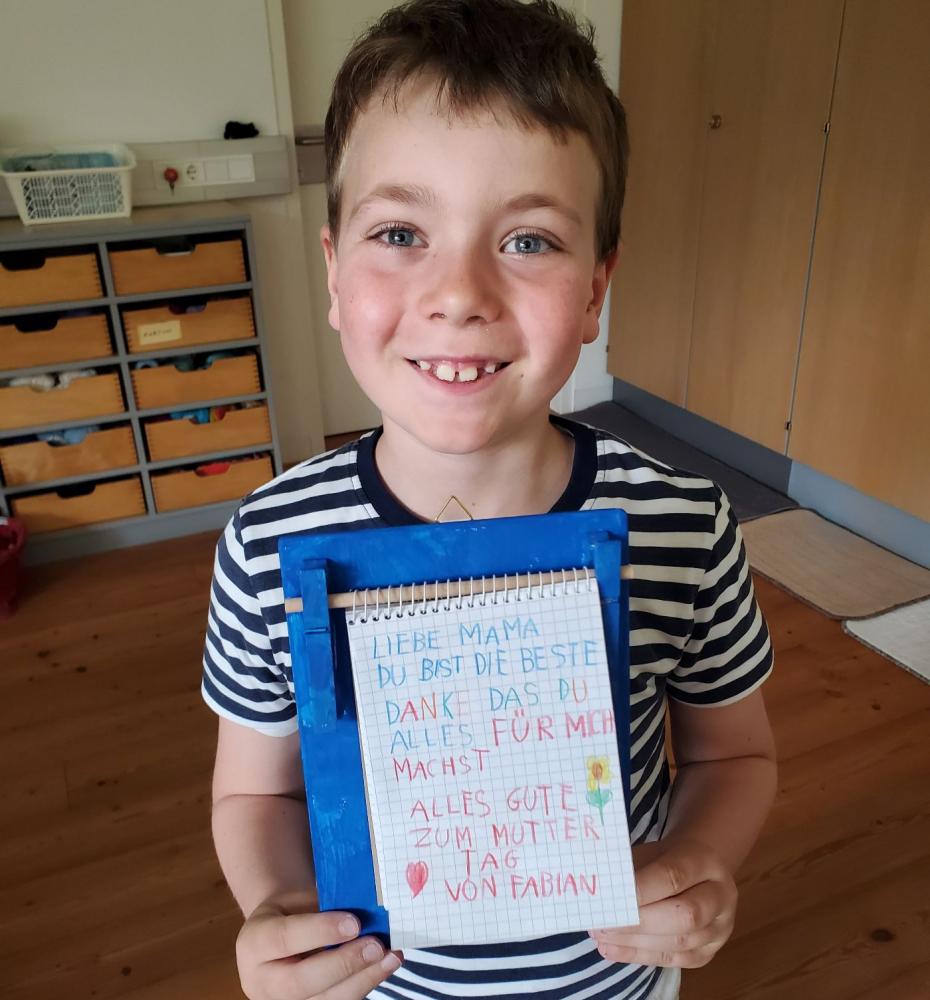 LIEBE MAMA
DU BIST DIE BESTE
DANKE DAS DU
ALLES FÜR MICH
MACHST
ALLES GUTE
ZUM MUTTER
TAG
VON FABIAN